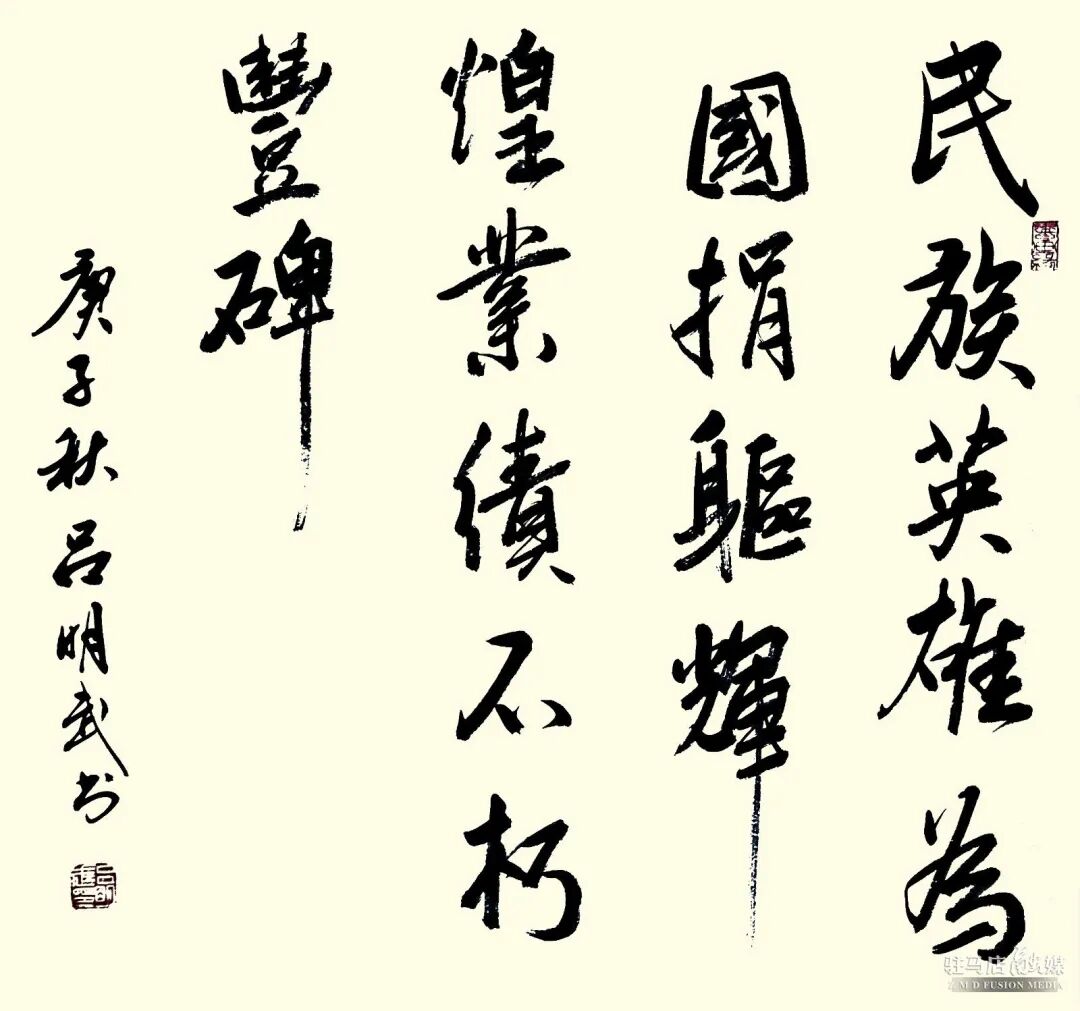 民族英雄為
國捐軀輝
煌業績不朽
豐碑
庚子秋呂明武书
驻马店融媒
Z M D FUSION MEDIA